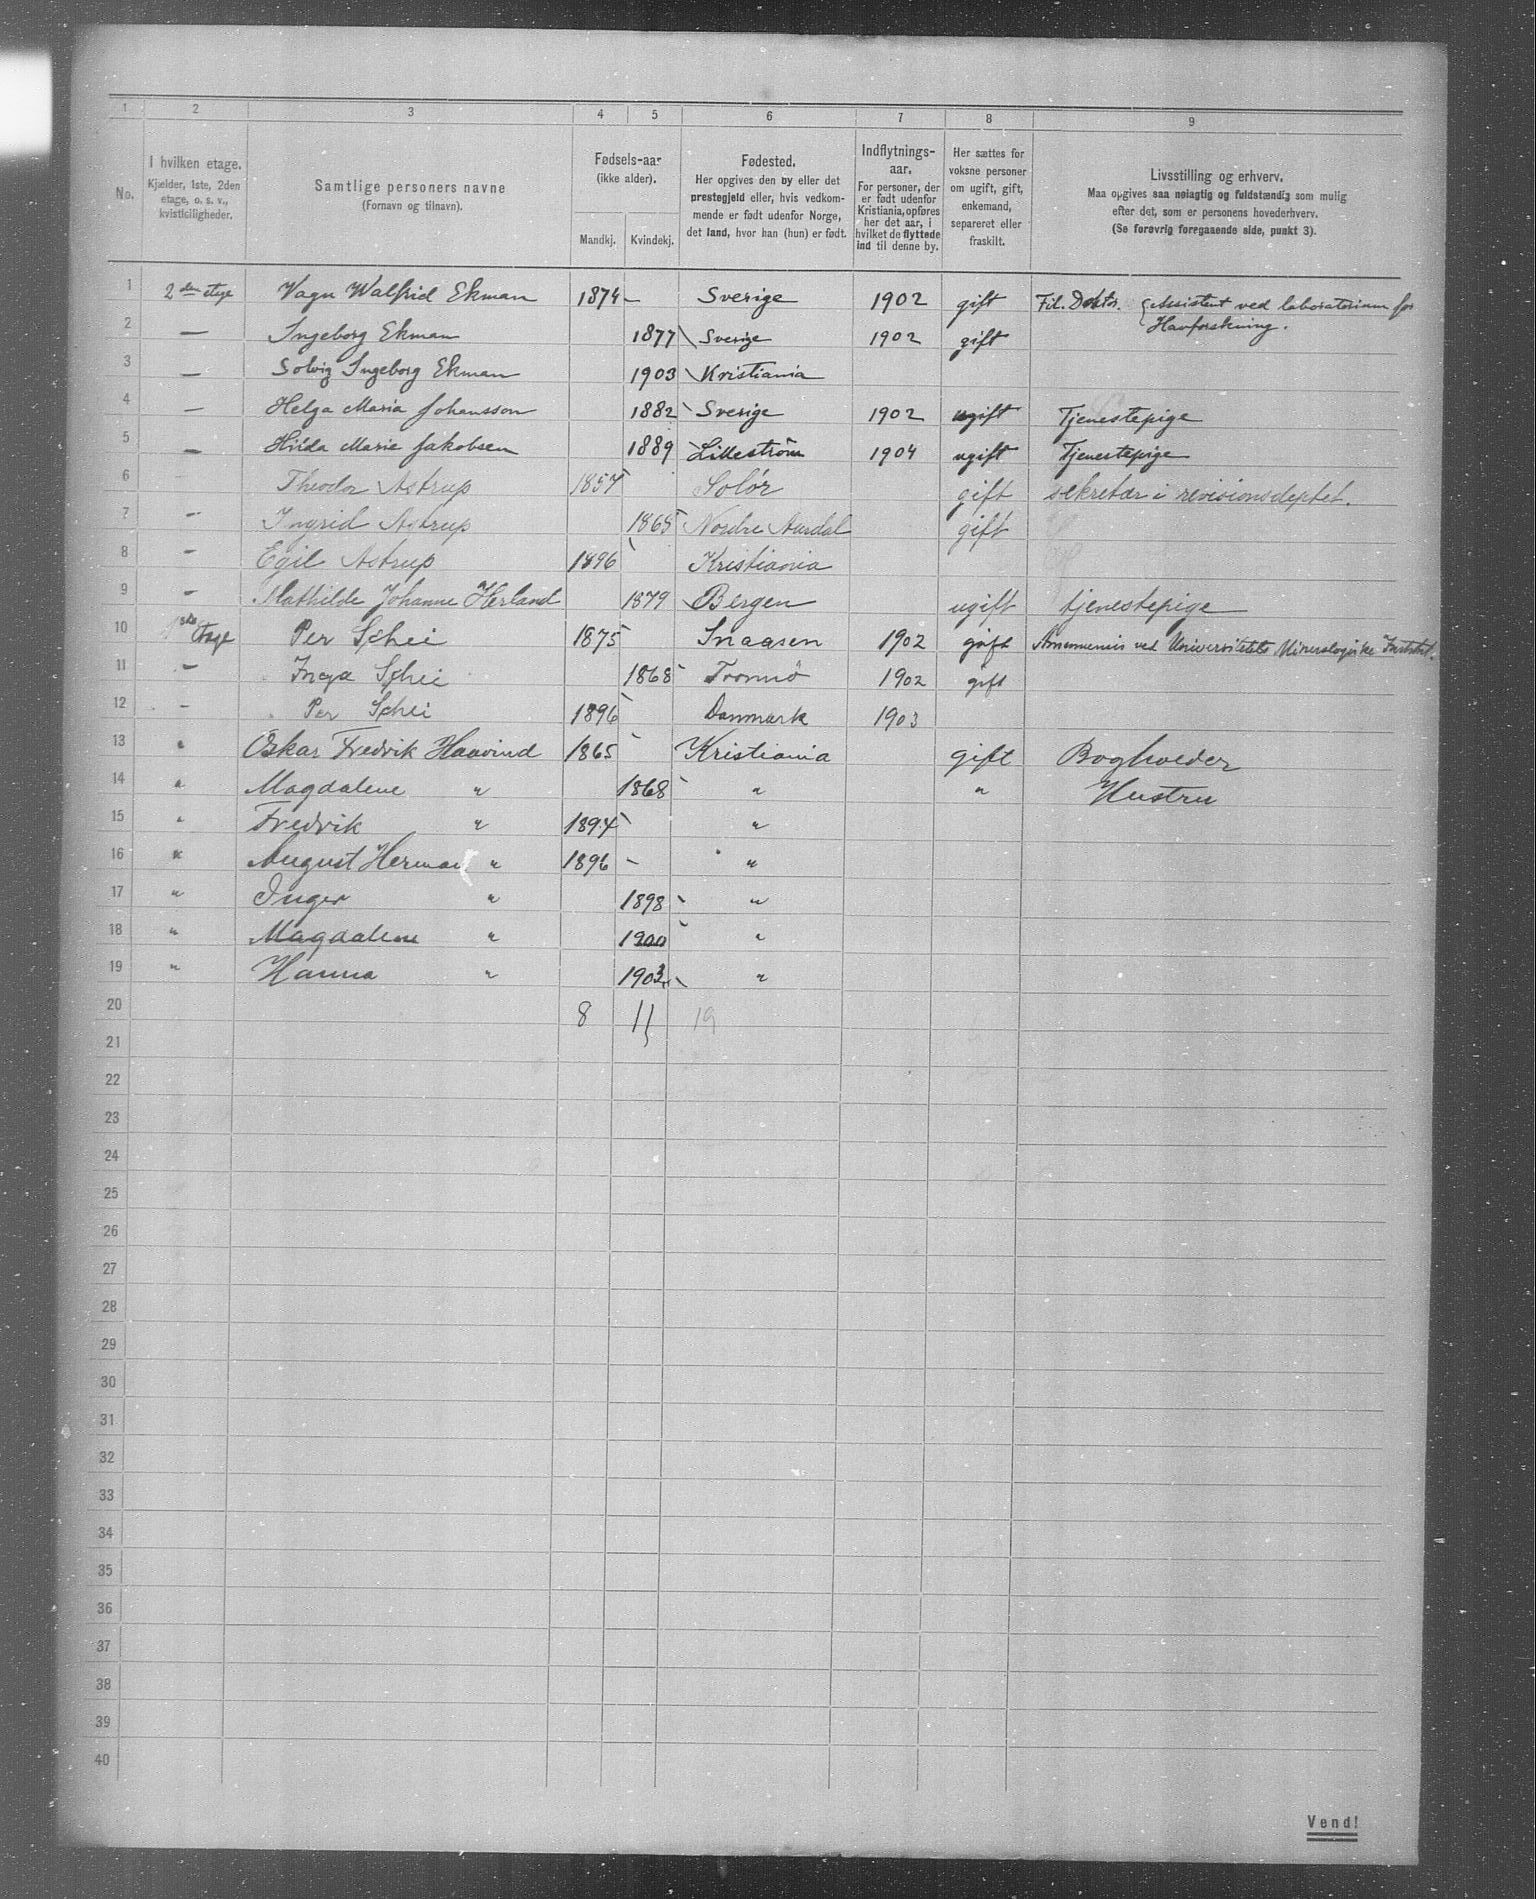 1 2 3 4 5 6 7 8 9
No.
I hvilken etage.
Kjælder, 1ste, 2den
etage, o. s. v.,
kvistleiligheder.
Samtlige personers navne
(Fornavn og tilnavn).
Fødsels-aar
(ikke alder).
Mandkj. Kvindekj.
Fødested.
Her opgives den by eller det
prestegjeld eller, hvis vedkom-
mende er født udenfor Norge,
det land, hvor han (hun) er født.
Indflytnings-
aar.
For personer, der
er født udenfor
Kristiania, opføres
her det aar, i
hvilket de flyttede
ind til denne by.
Her sættes for
voksne personer
om ugift, gift,
enkemand,
separeret eller
fraskilt.
Livsstilling og erhverv.
Maa opgives saa nøiagtig og fuldstændig som mulig
efter det, som er personens hovederhverv.
(Se forøvrig foregaaende side, punkt 3).
1 2den etage Vagn Walfrid Ekman 1874 – Sverige 1902 gift Fil. Doktor. Assistent ved laboratorium for
Havforskning.
2 — Ingeborg Ekman 1877 Sverige 1902 gift
3 — Solvig Ingeborg Ekman 1903 Kristiania
4 — Helga Maria Johansson 1882 Sverige 1902 ugift Tjenestepige
5 — Hilda Marie Jakobsen 1889 Lilleström 1904 ugift Tjenestepige
6 Theodor Astrup 1857 Solör gift sekretær i revisionsdeptet.
7 — Ingrid Astrup 1865 Nordre Aurdal gift
8 — Egil Astrup 1896 Kristiania
9 — Mathilde Johanne Herland 1879 Bergen ugift tjenestepige
10 1ste Etage Per Schei 1875 Snaasen 1902 gift ved Universitets Mineralogiske Institut.
11 — Inga Schei 1868 Tromsö 1902 gift
12 — Per Schei 1896 Danmark 1903
13 " Oskar Fredrik Haavind 1865 Kristiania gift Bogholder
14 " Magdalene " 1868 " " Hustru
15 " Fredrik " 1894 "
16 " August Herman " 1896 – "
17 " Inger " 1898 "
18 " Magdalene " 1900 "
19 " Hanna " 1903 "
20 8 11 19
21
22
23
24
25
26
27
28
29
30
31
32
33
34
35
36
37
38
39
40
Vend!